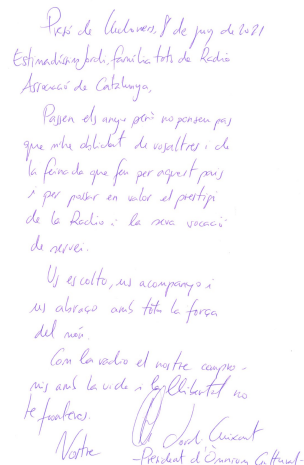 Presó de Lledoners, 8 de juny de 2021
Estimadíssim Jordi, família tots de Radio
Associació de Catalunya,
Passen els anys però no penseu pas
que m'he oblidat de vosaltres i de
la feinada que feu per aquest país
i per posar en valor el prestigi
de la Radio i la seva vocació
de servei.
Us escolto, us acompanyo i
us abraço amb tota la força
del món.
Com la radio el nostre compro-
mís amb la vida i la llibertat no
té fronteres.
Vostre
Jordi Cuixart
-President d'Òmnium Cultural-